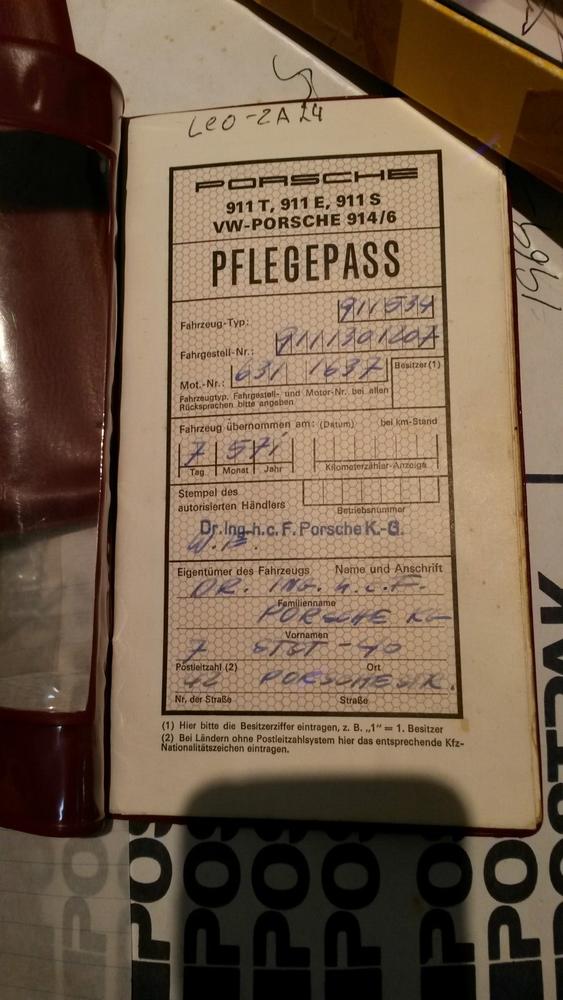 LEO-ZA 24
PORSCHE
911 T, 911 E, 911 S
VW-PORSCHE 914/6
PFLEGEPASS
Fahrzeug-Typ: 911534
Fahrgestell-Nr.: 9111301207
Mot.-Nr.: 631 1637
Besitzer (1)
Fahrzeugtyp, Fahrgestell- und Motor-Nr. bei allen
Rücksprachen bitte angeben
Fahrzeug übernommen am: (Datum) bei km-Stand
7 571
Tag Monat Jahr Kilometerzähler-Anzeige
Stempel des
autorisierten Händlers
Betriebsnummer
Dr.Ing.h.c.F.Porsche K.-G.
Eigentümer des Fahrzeugs Name und Anschrift
DR. ING. h.c.F.
Familienname
PORSCHE KG
Vornamen
7 STGT-40
Postleitzahl (2) Ort
42 PORSCHESTR.
Nr. der Straße Straße
(1) Hier bitte die Besitzerziffer eintragen, z. B. „1" = 1. Besitzer
(2) Bei Ländern ohne Postleitzahlsystem hier das entsprechende Kfz-
Nationalitätszeichen eintragen.